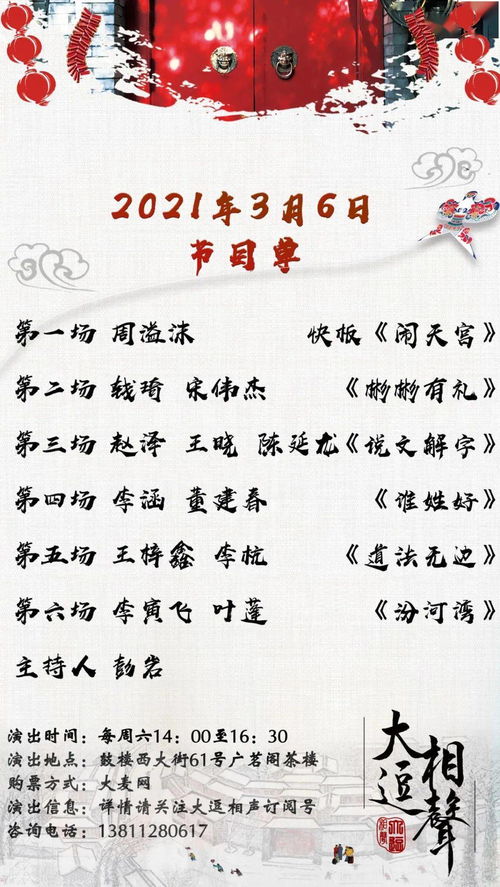 2021年3月6日
节目单
第一场 周溢沫 快板《闹天宫》
第二场 钱琦 宋伟杰 《彬彬有礼》
第三场 赵泽 王晓 陈延龙《说文解字》
第四场 李涵 董建春 《谁姓好》
第五场 王梓鑫 李杭 《道法无边》
第六场 李寅飞 叶蓬 《汾河湾》
主持人 彭岩
演出时间：每周六14：00至16：30
演出地点：鼓楼西大街61号广茗阁茶楼
购票方式：大麦网
演出信息：详情请关注大逗相声订阅号
咨询电话：13811280617
大逗
相聲